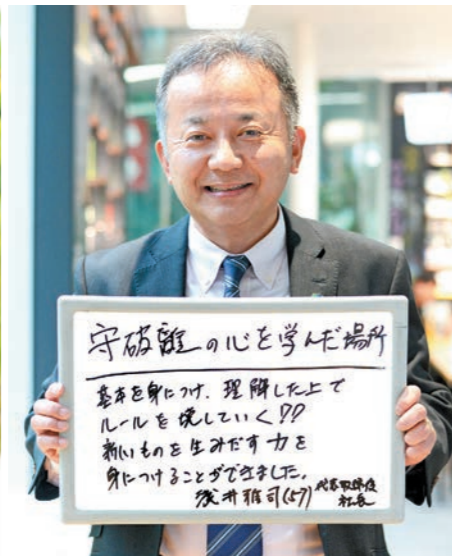 守破離の心を学んだ場所
基本を身につけ、理解した上で
ルールを壊していく!?
新しいものを生みだす力を
身につけることができました。
浅井雅司(57) 代表取締役
社長